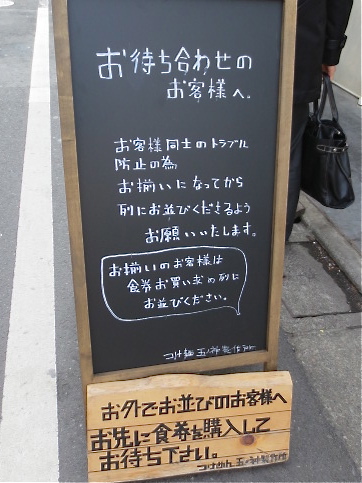 お待ち合わせの
お客様へ。
お客様同士のトラブル
防止の為
お揃いになってから
列にお並びくださるよう
お願いいたします。
お揃いのお客様は
食券お買い求め列に
お並びください。
つけ麺 五ノ神製作所
お外でお並びのお客様へ
お先に食券を購入して
お待ち下さい。
つけめん 五ノ神製作所